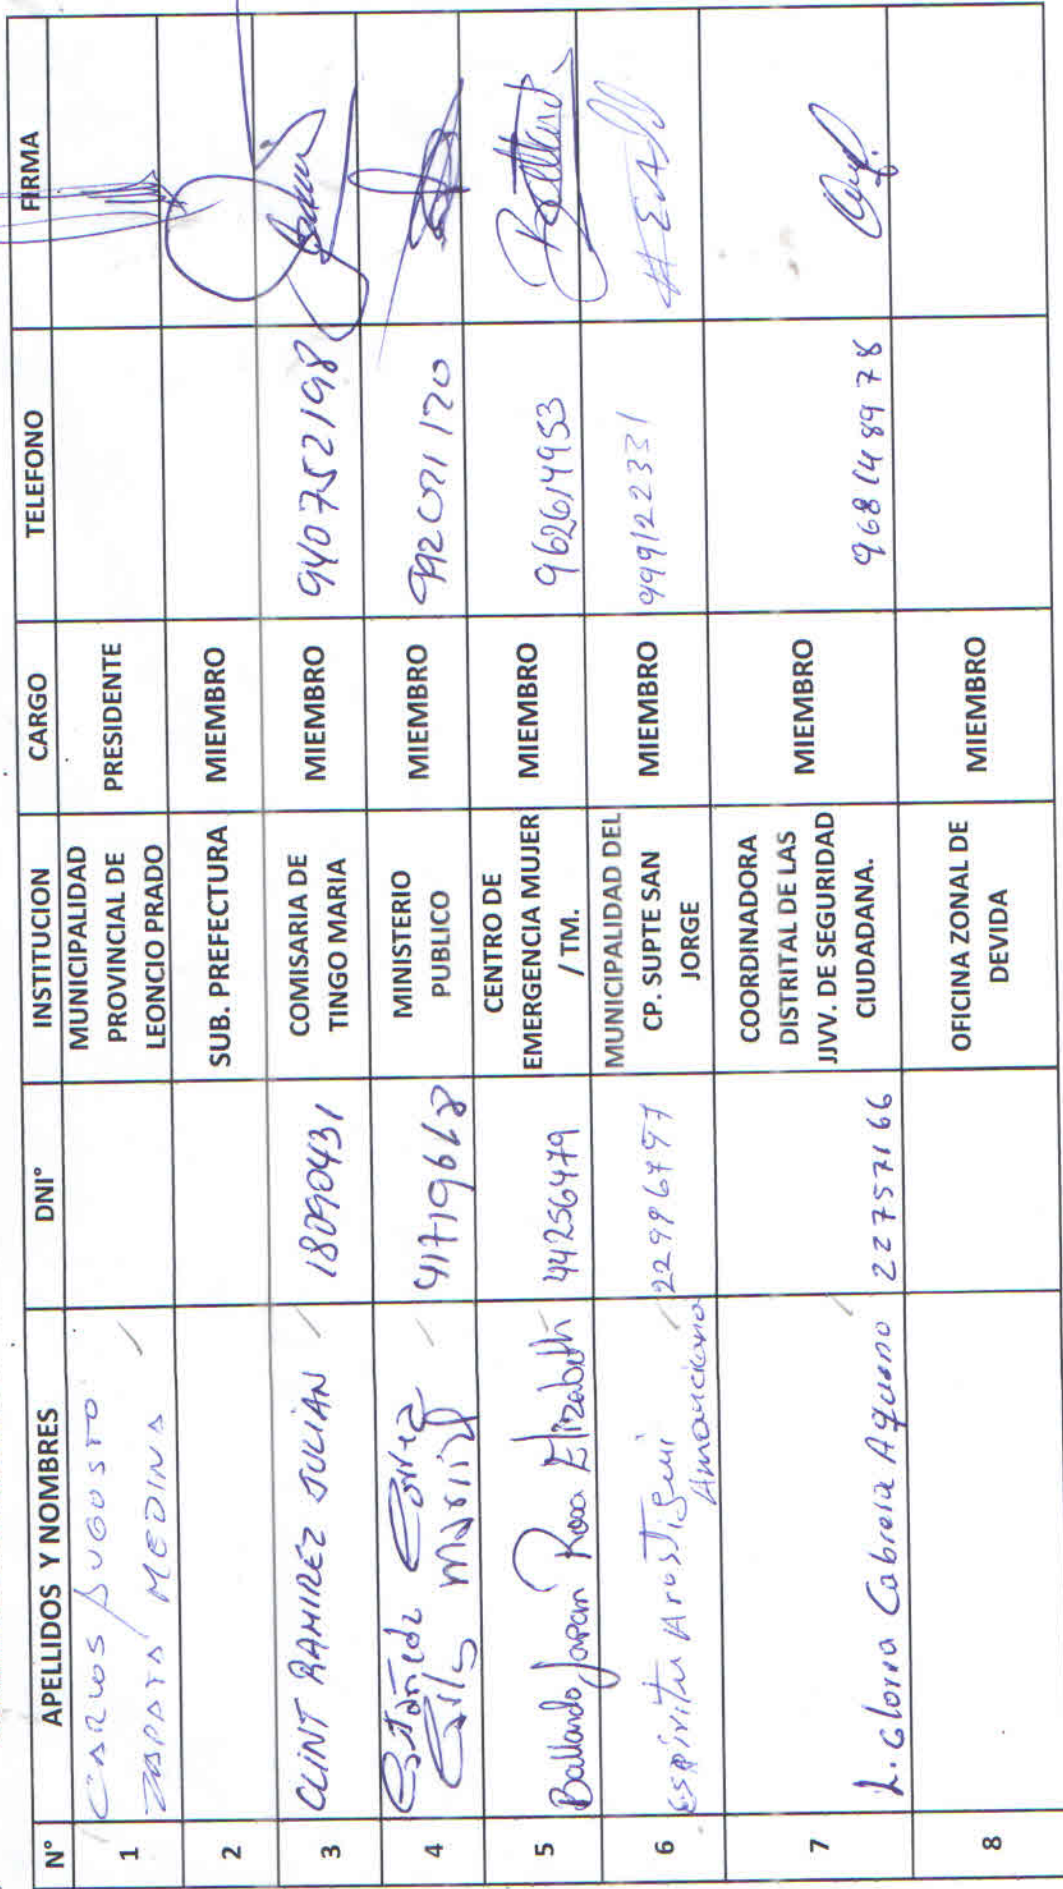 N° APELLIDOS Y NOMBRES DNI° INSTITUCION CARGO TELEFONO FIRMA
1 CARLOS AUGUSTO ZAPATA MEDINA MUNICIPALIDAD PROVINCIAL DE LEONCIO PRADO PRESIDENTE
2 SUB. PREFECTURA MIEMBRO
3 CLINT RAMIREZ JULIAN 18090431 COMISARIA DE TINGO MARIA MIEMBRO 940752198
4 41719668 MINISTERIO PUBLICO MIEMBRO 992071120
5 Ballardo Japari Rosa Elizabeth 44256479 CENTRO DE EMERGENCIA MUJER / TM. MIEMBRO 962614953
6 Espiritu Arostigui Amanciano MUNICIPALIDAD DEL CP. SUPTE SAN JORGE MIEMBRO 999122331
7 L. Gloria Cabrera Aquino 22757166 COORDINADORA DISTRITAL DE LAS JJVV. DE SEGURIDAD CIUDADANA. MIEMBRO 968648978
8 OFICINA ZONAL DE DEVIDA MIEMBRO